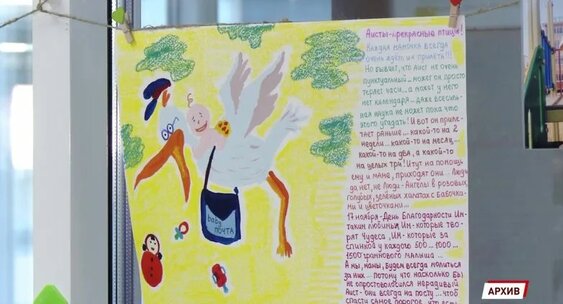 Аисты-прекрасные птицы!
Каждая мамочка всегда
очень ждёт их прилёта!!!
Но бывает, что Аист не очень
пунктуальный... может он, просто
теряет часы... а может у него
нет календаря - даже всесиль-
ная наука не может пока что
этого угадать! И вот он приле-
тает раньше... какой-то на 2
недели... какой-то на месяц...
какой-то на два, а какой-то
на целых три! И тут на помощь
ему и маме, приходят они - Люди
да нет, не Люди-Ангелы! в розовых
голубых, зелёных халатах с бабочка-
ми и цветочками...
17 ноября-День Благодарности Им-
таким любимым, Им-которые тво-
рят Чудеса, Им-которые за
спинкой у каждого 500... 1000...
1500 граммового малыша...
А мы, мамы, будем всегда молиться
за них... потому что насколько бы
не опростоволосился нерадивый
Аист-они всегда на посту... чтоб
спасти самое дорогое, что есть
baby
ПОЧТА
АРХИВ